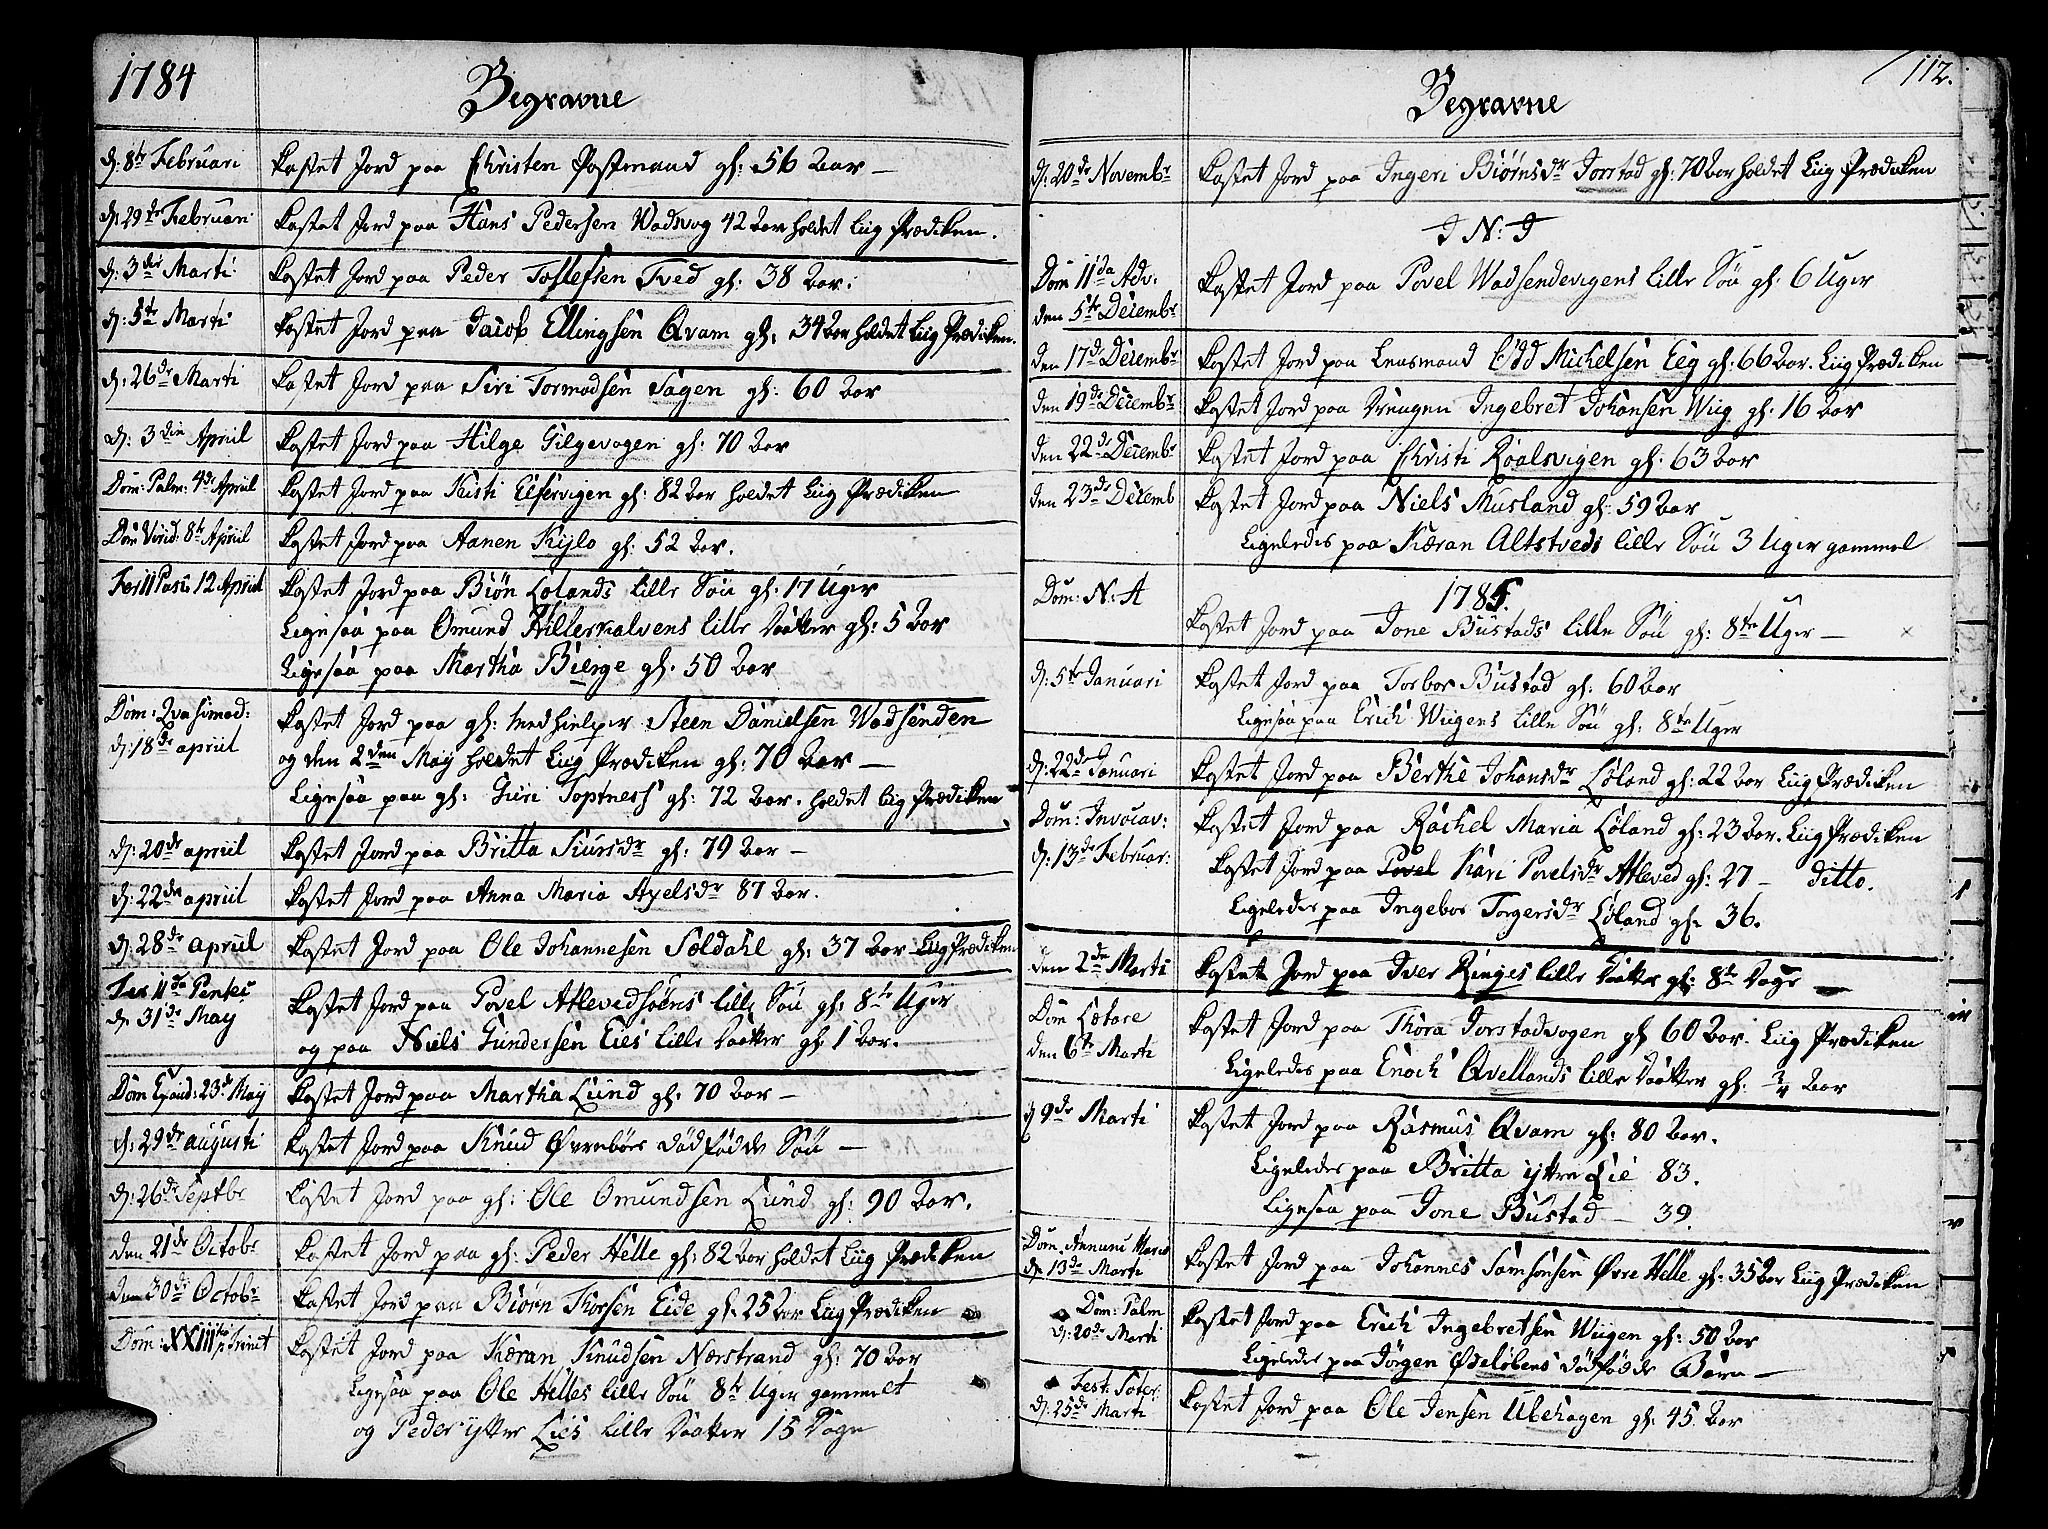 1784
Begravne
d: 8te Februari Kastet Jord paa Christen Postmand gl: 56 Aar
d: 29de Februari Kastet Jord paa Hans Pedersen Vadsvog 42 Aar holdet Liig Prædiken.
d: 3die Marti: Kastet Jord paa Peder Tollefsen Tved gl: 38 Aar:
d: 5te Marti Kastet Jord paa Jacob Ellingsen Qvam gl: 34 Aar holdet Liig Prædiken.
d: 26de Marti Kastet Jord paa Siri Tormodsen Sagen gl: 60 Aar
d: 3die Apriil Kastet Jord paa Hilge Gilgevogen gl: 70 Aar
Dom: Palm: 4de Apriil Kastet Jord paa Kisti Elfervigen gl: 82 Aar holdet Liig Prædiken
Dom Virid: 8te Apriil Kastet Jord paa Aanen Kijlo gl: 52 Aar.
Fer II Pasc: 12 Apriil Kastet Jord paa Biön Lolands lille Sön gl: 17 Uger
Ligesaa paa Omund Hillerkalvens lille Daatter gl: 5 Aar
Ligesaa paa Martha Bierge gl: 50 Aar
Dom: Qvasimod: Kastet Jord paa gl: Medhielper Steen Danielsen Vadsenden
d: 18de apriil og den 2den May holdet Liig Prædiken gl: 70 Aar
Ligesaa paa gl: Guri Toptness gl: 72 Aar. holdet Liig Prædiken
d: 20de apriil Kastet Jord paa Britta Siursdr gl: 79 Aar
d: 22de apriil Kastet Jord paa Anna Maria Axelsdr 87 Aar.
d: 28de apriil Kastet Jord paa Ole Johannesen Sældahl gl: 37 Aar Liig Prædiken
Fer II da Pentec Kastet Jord paa Povel Atlevedsöens lille Sön gl: 8te Uger
d: 31de May og paa Niels Gundersen Eies lille Daatter gl: 1 Aar.
Dom Exaud: 23de May Kastet Jord paa Martha Lund gl: 70 Aar
d: 29de augusti Kastet Jord paa Knud Øvreböes dödfödde Sön
d: 26de Septbr Kastet Jord paa gl: Ole Omundsen Lund gl: 90 Aar.
den 21de Octobr Kastet Jord paa gl: Peder Helle gl: 82 Aar holdet Liig Prædiken
den 30de Octobr Kastet Jord paa Biörn Thorsen Eide gl: 25 Aar Liig Prædiken
Dom: XXIII p: Trinit Kastet Jord paa Kæran Knudsen Nærstrand gl: 70 Aar
Ligesaa paa Ole Helles lille Sön 8te Uger gammelt
og Peder ytter Lies lille Daatter 15 Dage
112.
Begravne
d: 20de Novembr Kastet Jord paa Ingeri Biörnsdr Jorstad gl: 70 Aar holdet Liig Prædiken
J N: J
Dom II da Adv: Kastet Jord paa Povel Wadsendevigens lille Sön gl: 6 Uger
den 5te Decembr
den 17de Decembr Kastet Jord paa Lensmand Odd Michelsen Eeg gl: 66 Aar. Liig Prædiken
den 19de Decembr Kastet Jord paa Drengen Ingebret Johansen Wiig gl: 16 Aar
den 22de Decembr Kastet Jord paa Christi Roalsvigen gl: 63 Aar
den 23de Decemb Kastet Jord paa Niels Musland gl: 59 Aar
Ligeledes paa Kæran Altstveds lille Sön 3 Uger gammel
1785.
Dom: N: A Kastet Jord paa Jone Bustads lille Sön gl: 8te Uger
d: 5te Januari Kastet Jord paa Torbor Bustad gl: 60 Aar
Ligesaa paa Erich Wiigens lille Sön gl: 8te Uger
d: 22de Januari Kastet Jord paa Berthe Johansdr Löland gl: 22 Aar Liig Prædiken
Dom: Invocav: Kastet Jord paa Rachel Maria Löland gl: 23 Aar. Liig Prædiken
d: 13de Februar: Kastet Jord paa Povel Kari Povelsdr Atleved gl: 27 ditto.
Ligeledes paa Ingebor Torgersdr Löland gl: 36.
den 2den Marti Kastet Jord paa Iver Ringes lille Daatter gl: 8te Dage
Dom Lætare Kastet Jord paa Thora Jorstadvogen gl 60 Aar. Liig Prædiken
den 6te Marti Ligeledes paa Enoch Qvellands lille Daatter gl: 3/4 Aar
d 9de Marti Kastet Jord paa Rasmus Qvam gl: 80 Aar.
Ligeledes paa Britta ytre Lie 83.
Ligesaa paa Jone Bustad 39.
Dom. Annunc Mariæ Kastet Jord paa Johannes Samsonsen Øvre Helle gl: 35 Aar Liig Prædiken
d: 13de Marti
Dom: Palm Kastet Jord paa Erich Ingebretsen Wiigen gl: 50 Aar
d: 20de Marti Ligeledes paa Jörgen Ødelöbens dödfödde Barn
Fest: Soter: Kastet Jord paa Ole Jensen Ubehagen gl: 45. Aar
d: 25de Marti